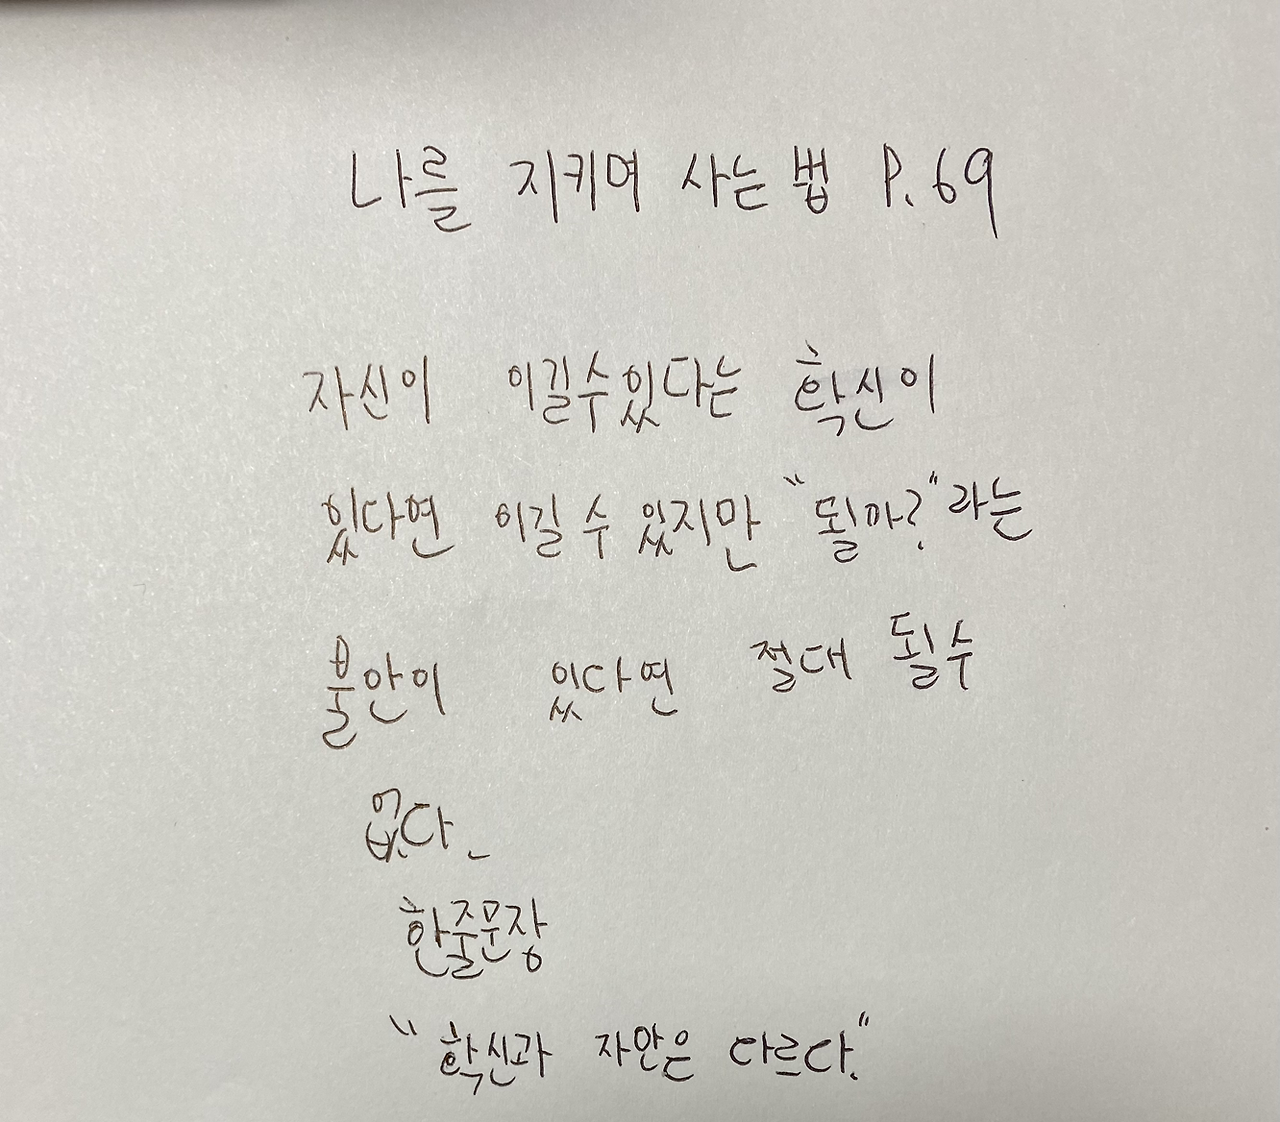 나를 지키며 사는 법 P.69
자신이 이길수있다는 확신이
있다면 이길 수 있지만 "될까?"라는
불안이 있다면 절대 될수
없다.
한줄문장
"확신과 자만은 다르다."